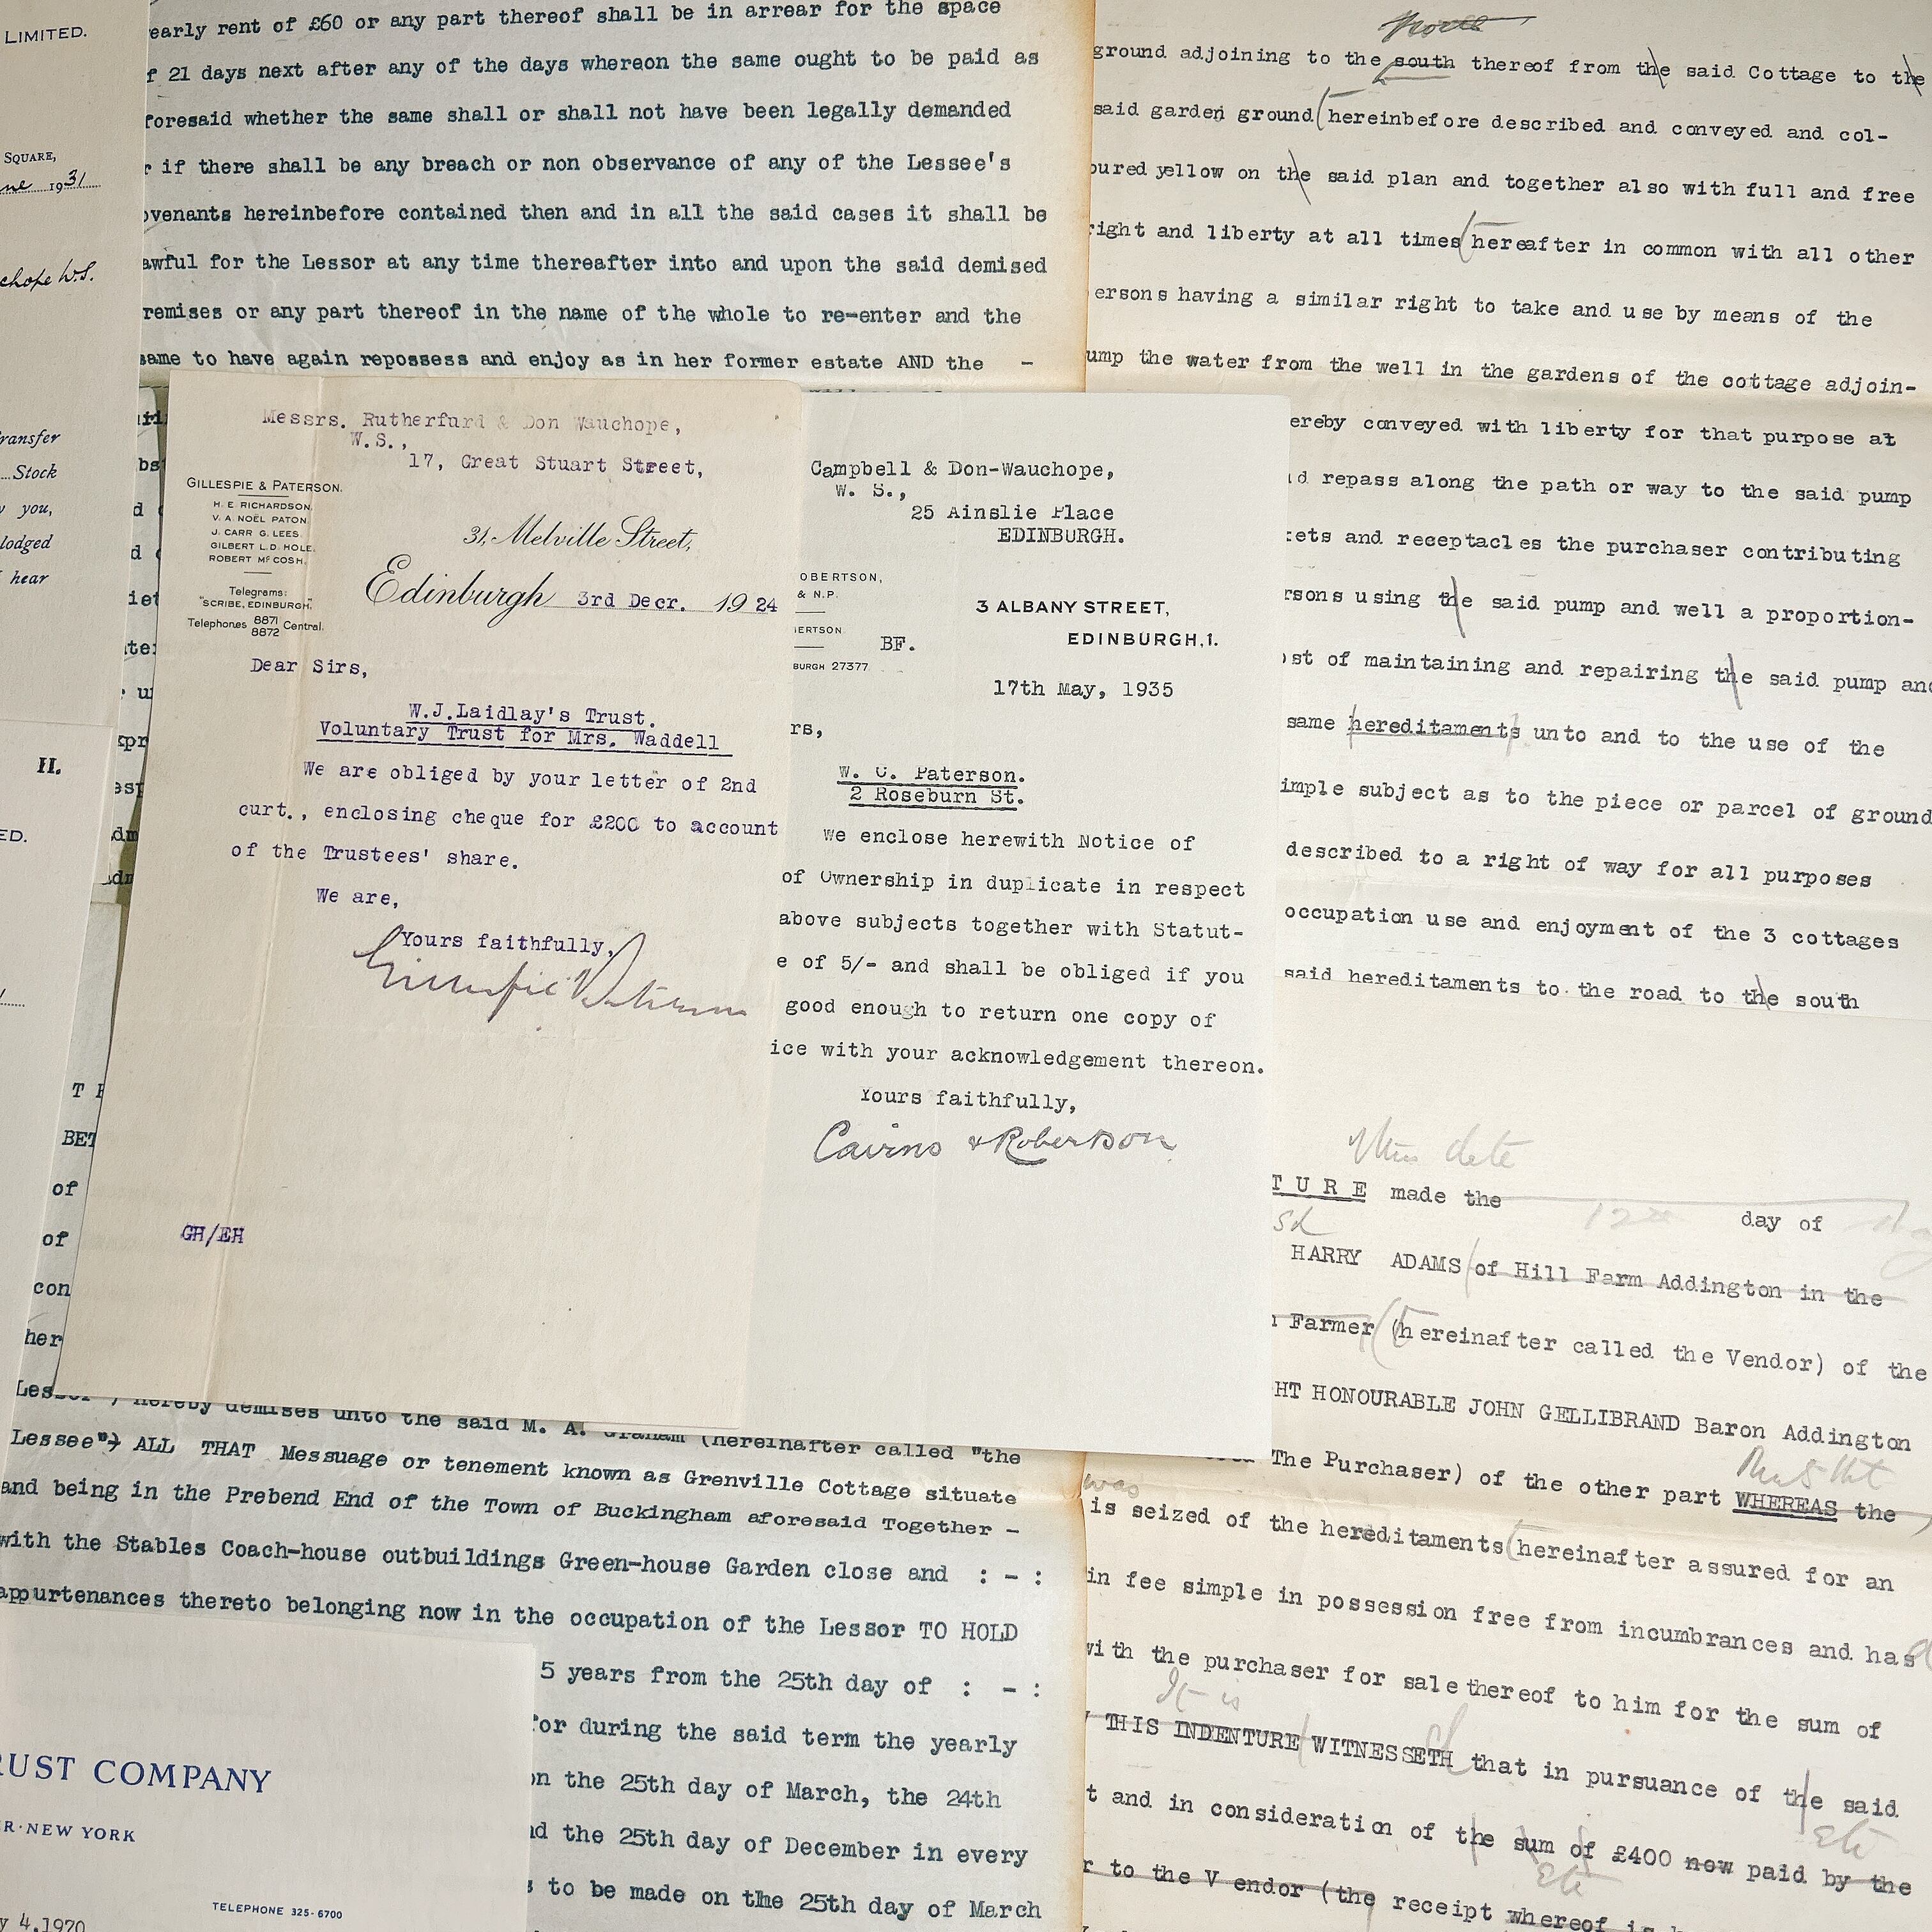 LIMITED.
SQUARE,
1931
W.S.
Transfer
Stock
you,
lodged
hear
II.
early rent of £60 or any part thereof shall be in arrear for the space
21 days next after any of the days whereon the same ought to be paid as
foresaid whether the same shall or shall not have been legally demanded
if there shall be any breach or non observance of any of the Lessee's
ovenants hereinbefore contained then and in all the said cases it shall be
awful for the Lessor at any time thereafter into and upon the said demised
remises or any part thereof in the name of the whole to re-enter and the
same to have again repossess and enjoy as in her former estate AND the -
Messrs. Rutherfurd & Don Wauchope,
W.S.,
17, Great Stuart Street,
GILLESPIE & PATERSON.
H. E. RICHARDSON.
V. A. NOËL PATON.
J. CARR G. LEES.
GILBERT L. D. HOLE.
ROBERT McCOSH.
Telegrams:
"SCRIBE, EDINBURGH."
Telephones 8871 8872 Central.
31, Melville Street,
Edinburgh 3rd Decr. 1924
Dear Sirs,
W.J.Laidlay's Trust.
Voluntary Trust for Mrs. Waddell
We are obliged by your letter of 2nd
curt., enclosing cheque for £200 to account
of the Trustees' share.
We are,
Yours faithfully,
Gillespie & Paterson
GH/EH
Campbell & Don-Wauchope,
W. S.,
25 Ainslie Place
EDINBURGH.
OBERTSON,
& N.P.
ERTSON
BURGH 27377
BF.
3 ALBANY STREET,
EDINBURGH,1.
17th May, 1935
rs,
W. C. Paterson.
2 Roseburn St.
We enclose herewith Notice of
of Ownership in duplicate in respect
above subjects together with Statut-
e of 5/- and shall be obliged if you
good enough to return one copy of
ice with your acknowledgement thereon.
Yours faithfully,
Cairns & Robertson
ground adjoining to the south thereof from the said Cottage to the
said garden ground hereinbefore described and conveyed and col-
oured yellow on the said plan and together also with full and free
right and liberty at all times hereafter in common with all other
ersons having a similar right to take and use by means of the
ump the water from the well in the gardens of the cottage adjoin-
ereby conveyed with liberty for that purpose at
d repass along the path or way to the said pump
kets and receptacles the purchaser contributing
rsons using the said pump and well a proportion-
ost of maintaining and repairing the said pump and
same hereditaments unto and to the use of the
imple subject as to the piece or parcel of ground
described to a right of way for all purposes
occupation use and enjoyment of the 3 cottages
said hereditaments to the road to the south
TURE made the 12th day of
HARRY ADAMS of Hill Farm Addington in the
Farmer (hereinafter called the Vendor) of the
HT HONOURABLE JOHN GELLIBRAND Baron Addington
The Purchaser) of the other part WHEREAS the
was
is seized of the hereditaments hereinafter assured for an
in fee simple in possession free from incumbrances and has
with the purchaser for sale thereof to him for the sum of
It is
THIS INDENTURE WITNESSETH that in pursuance of the said
t and in consideration of the sum of £400 now paid by the
r to the Vendor (the receipt whereof is
T H
BET
of
of
con
her
Lessor", hereby demises unto the said M. A. Graham (hereinafter called "the
Lessee") ALL THAT Messuage or tenement known as Grenville Cottage situate
and being in the Prebend End of the Town of Buckingham aforesaid Together -
with the Stables Coach-house outbuildings Green-house Garden close and : - :
appurtenances thereto belonging now in the occupation of the Lessor TO HOLD
5 years from the 25th day of : - :
for during the said term the yearly
on the 25th day of March, the 24th
nd the 25th day of December in every
s to be made on the 25th day of March
RUST COMPANY
R·NEW YORK
TELEPHONE 325-6700
y 4,1970